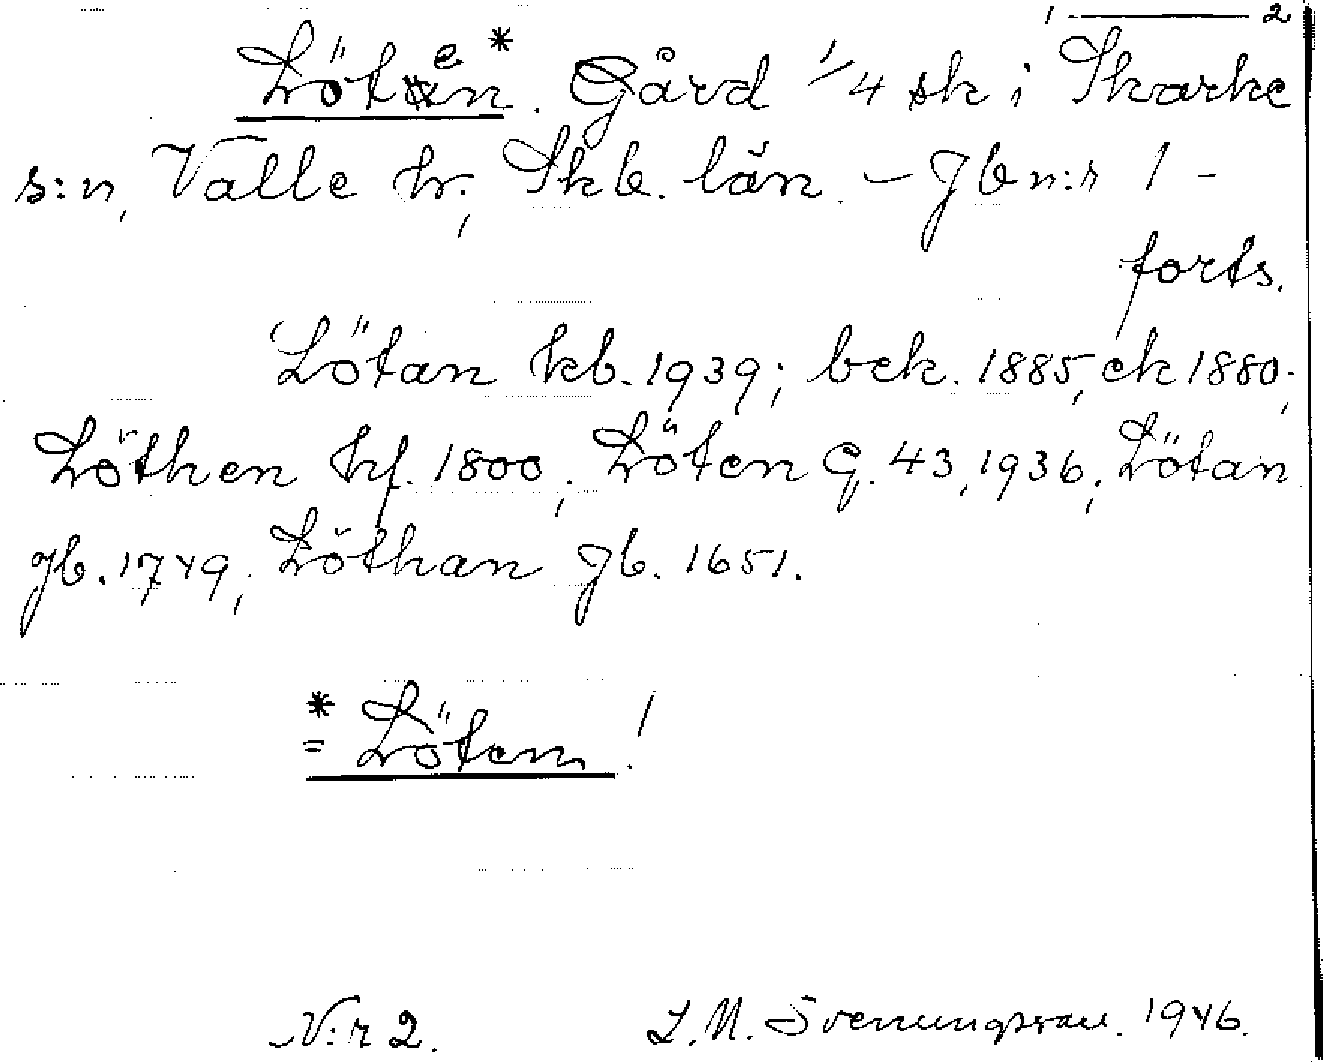 1 — 2
Löten*. Gård 1/4 sk i Skarke
s:n, Valle hr; Skb. län. – Jb n:r 1 –
forts.
Lötan kb. 1939; bek. 1885, ek 1880;
Löthen hf. 1800; Löten G. 43, 1936; Lötan
Jb. 1749; Löthan Jb. 1651.
* = Löten!
N:r 2. L. M. Svenungsson. 1946.